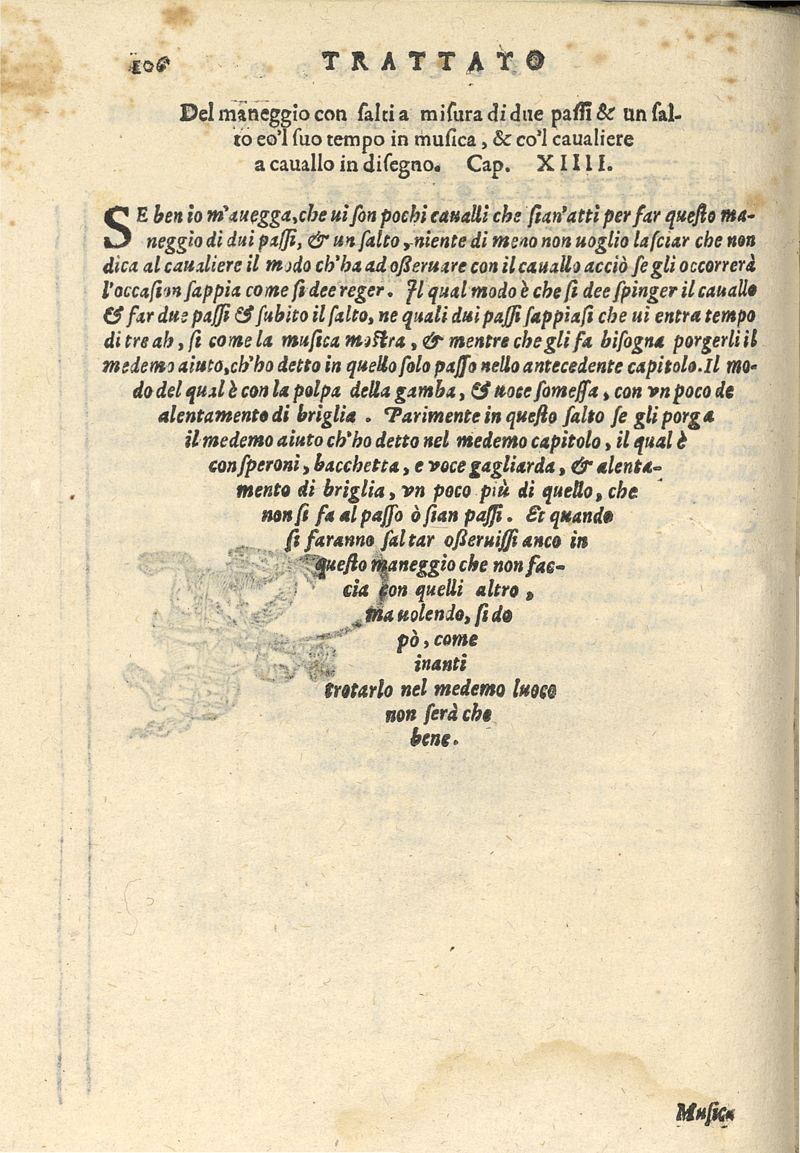 106 TRATTATO
Del maneggio con salti a misura di due passi & un sal-
to eo'l suo tempo in musica, & co'l caualiere
a cauallo in disegno. Cap. XIIII.
SE ben io m'auegga, che ui son pochi caualli che sian'atti per far questo ma-
neggio di dui passi, & un salto, niente di meno non uoglio lasciar che non
dica al caualiere il modo ch'ha ad osseruare con il cauallo acciò se gli occorrerà
l'occasion sappia come si dee reger. Il qual modo è che si dee spinger il cauallo
& far due passi & subito il salto, ne quali dui passi sappiasi che ui entra tempo
di tre ah, si come la musica mostra, & mentre che gli fa bisogna porgerli il
medemo aiuto, ch'ho detto in quello solo passo nello antecedente capitolo. Il mo-
do del qual è con la polpa della gamba, & uoce somessa, con vn poco de
alentamento di briglia. Parimente in questo salto se gli porga
il medemo aiuto ch'ho detto nel medemo capitolo, il qual è
con speroni, bacchetta, e voce gagliarda, & alenta-
mento di briglia, vn poco più di quello, che
non si fa al passo ò sian passi. Et quando
si faranno saltar osseruissi anco in
questo maneggio che non fac-
cia con quelli altro,
ma uolendo, si do
pò, come
inanti
trotarlo nel medemo luoco
non serà che
bene.
Musica